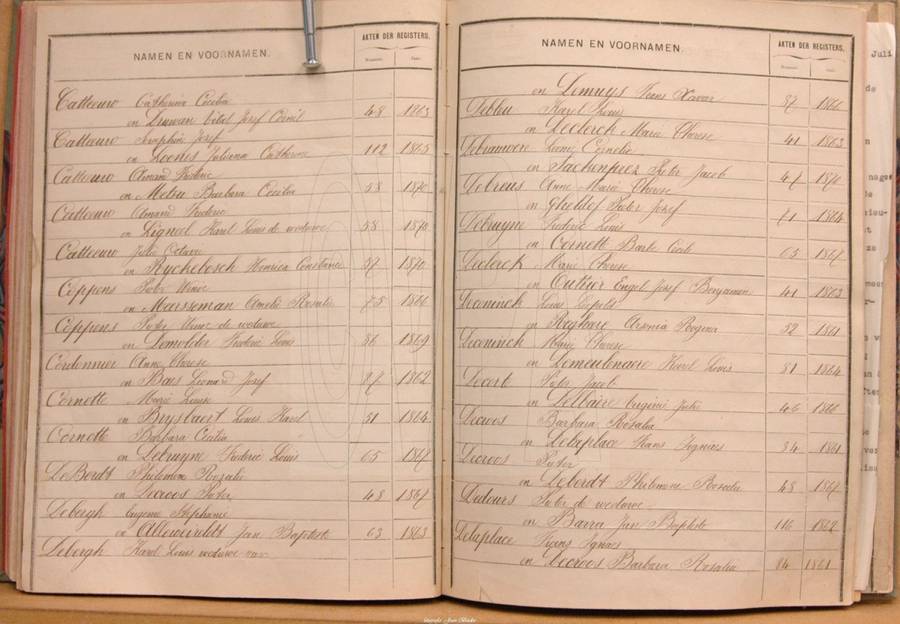 NAMEN EN VOORNAMEN.
AKTEN DER REGISTERS.
Catteeuw Catharina Cecilia
en Druwan Vital Josef Cornil 48 1863
Catteeuw Seraphin Josef
en Leenis Juliana Catherina 112 1865
Catteeuw Amand Frederic
en Metsu Barbara Cecilia 58 1870
Catteeuw Amand Frederic
en Lignel Karel Louis de weduwe 58 1870
Catteeuw Julie Octavie
en Ryckebosch Henrica Constancia 57 1870
Coppens Pieter
en Marsseman Amelie Rosalie 75 1866
Coppens Pieter de weduwe
en Demolder Frederic Louis 86 1869
Cordonnier Anne Therese
en Baas Leonard Josef 87 1862
Cornette Marie Louise
en Bryslaert Louis Karel 51 1864
Cornette Barbara Cecilia
en Debruyne Frederic Louis 65 1867
DeBerdt Philomene Rosalie
en Decroos Pieter 48 1867
Debergh Eugenie Stephanie
en Alleweireldt Jan Baptiste 63 1863
Debergh Karel Louis weduwe van
NAMEN EN VOORNAMEN.
AKTEN DER REGISTERS.
en Demuys Frans Xavier 87 1861
Debleu Karel Louis
en Declerck Marie Therese 41 1863
Debrauwere Cornelie
en Jachenpeez Pieter Jacob 47 1870
Debreus Anne Marie Therese
en Gheldof Pieter Josef 71 1864
Debruyne Frederic Louis
en Cornett Barbe Cecile 65 1867
Declerck Marie Therese
en Outtier Engel Josef Benjamin 41 1863
Deconinck Louis Leopold
en Ryghave Arsenia Regina 52 1861
Deconinck Marie Therese
en Demeulenaere Karel Louis 81 1864
Decort Pieter Jacob
en Delbaere Eugenie Julie 46 1866
Decroos Barbara Rosalia
en Delaplace Frans Ignaas 84 1861
Decroos Pieter
en Deberdt Philomene Rosalie 48 1867
Dedours Pieter de weduwe
en Barra Jan Baptiste 116 1862
Delaplace Frans Ignaas
en Decroos Barbara Rosalia 84 1861
Juli